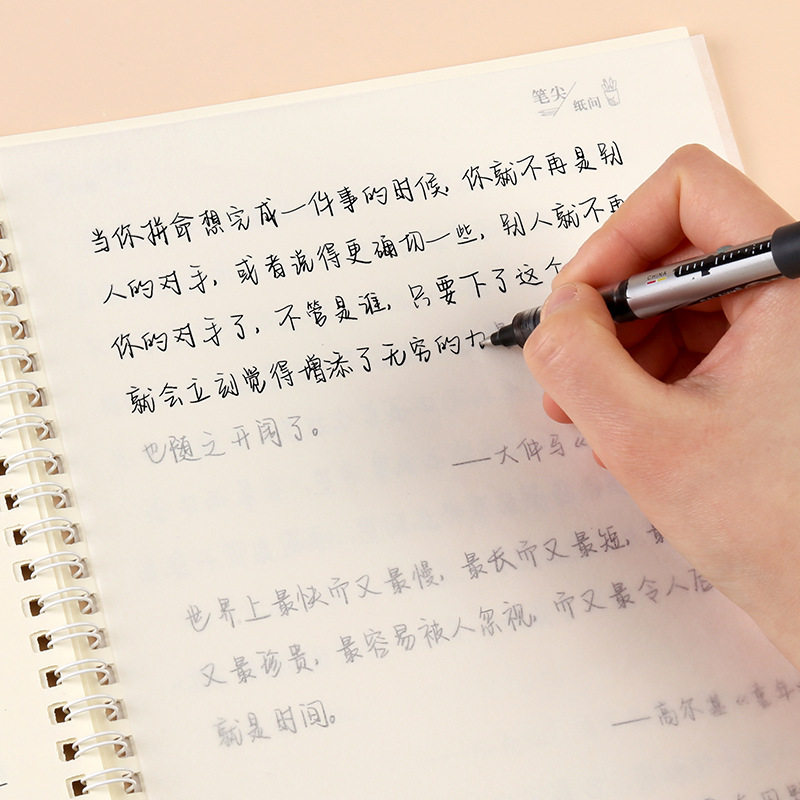 笔尖
纸间
当你拼命想完成一件事的时候，你就不再是别
人的对手，或者说得更确切一些，别人就不再
你的对手了，不管是谁，只要下了这个
就会立刻觉得增添了无穷的力
CHINA
也随之开阔了。
——大仲马《
世界上最快而又最慢，最长而又最短，最
又最珍贵，最容易被人忽视，而又最令人后
就是时间。
——高尔基《童年